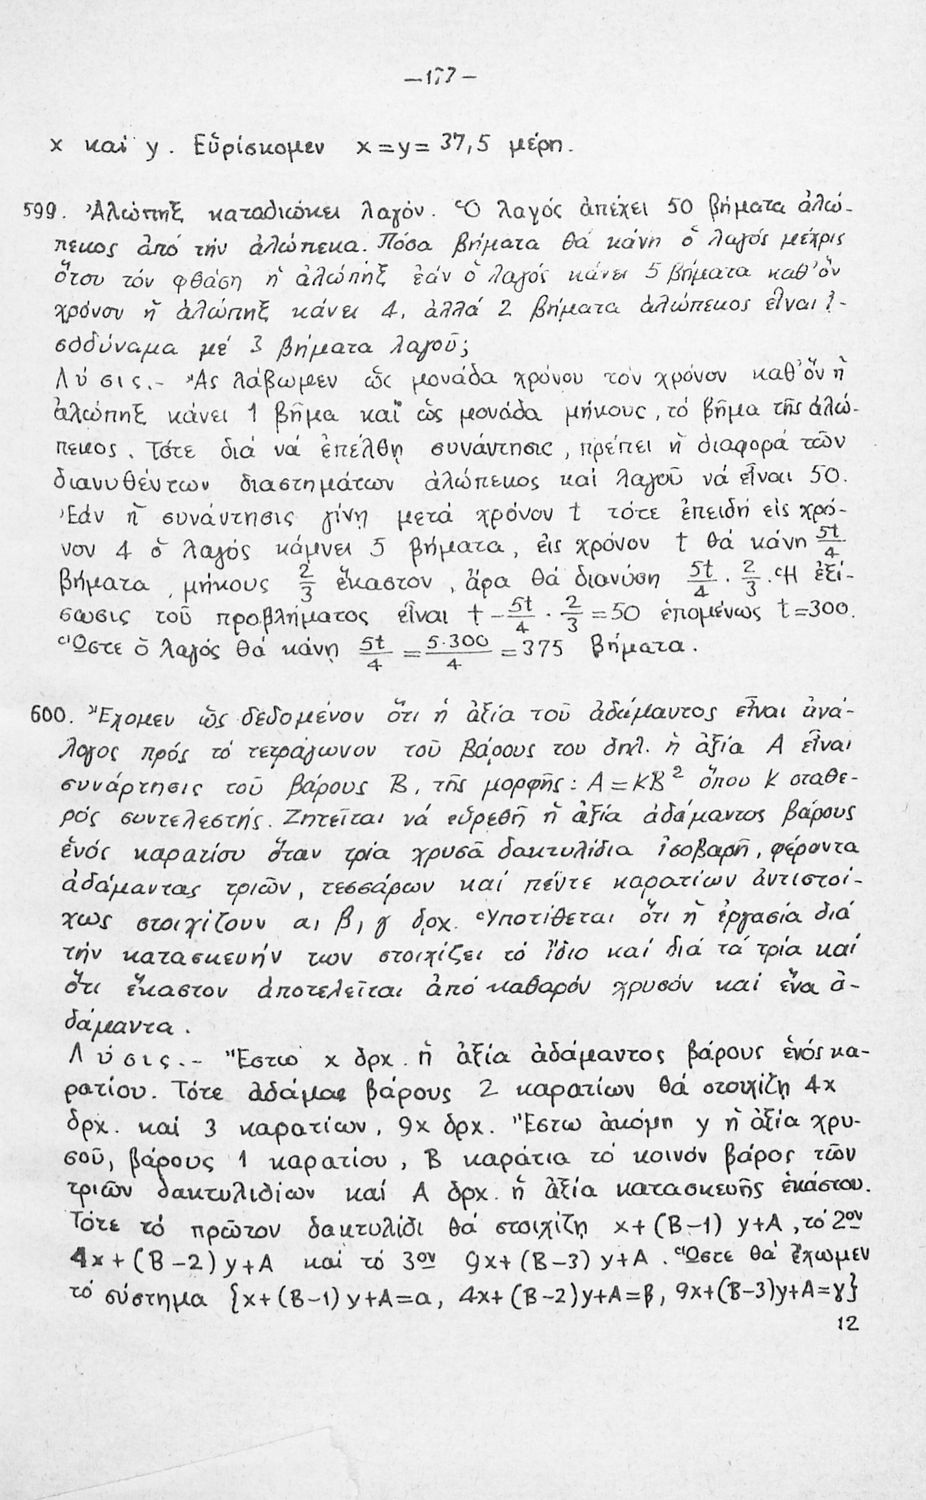 —177—
x καί y. Εὑρίσκομεν x=y= 37,5 μέρη.
599. Ἀλώπηξ καταδιώκει λαγόν. Ὁ λαγός ἀπέχει 50 βήματα ἀλώ-
πεκος ἀπό τήν ἀλώπεκα. Πόσα βήματα θά κάνη ὁ λαγός μέχρις
ὅτου τόν φθάση ἡ ἀλώπηξ ἐάν ὁ λαγός κάνει 5 βήματα καθ' ὅν
χρόνου ἡ ἀλώπηξ κάνει 4, ἀλλά 2 βήματα ἀλώπεκος εἶναι ἰ-
σοδύναμα μέ 3 βήματα λαγοῦ;
Λύσις.- Ἄς λάβωμεν ὡς μονάδα χρόνου τόν χρόνον καθ' ὅν ἡ
ἀλώπηξ κάνει 1 βῆμα καί ὡς μονάδα μήκους, τό βῆμα τῆς ἀλώ-
πεκος. Τότε διά νά ἐπέλθη συνάντησις, πρέπει ἡ διαφορά τῶν
διανυθέντων διαστημάτων ἀλώπεκος καί λαγοῦ νά εἶναι 50.
Ἐάν ἡ συνάντησις γίνη μετά χρόνον t τότε ἐπειδή εἰς χρό-
νον 4 ὁ λαγός κάμνει 5 βήματα, εἰς χρόνον t θά κάνη 5t/4
βήματα, μήκους 2/3 ἕκαστον, ἄρα θά διανύση 5t/4 · 2/3. Ἡ ἐξί-
σωσις τοῦ προβλήματος εἶναι t - 5t/4 · 2/3 = 50 ἑπομένως t=300.
Ὥστε ὁ λαγός θά κάνη 5t/4 = 5·300/4 = 375 βήματα.
600. Ἔχομεν ὡς δεδομένον ὅτι ἡ ἀξία τοῦ ἀδάμαντος εἶναι ἀνά-
λογος πρός τό τετράγωνον τοῦ βάρους του δηλ. ἡ ἀξία A εἶναι
συνάρτησις τοῦ βάρους B, τῆς μορφῆς: A = KB² ὅπου K σταθε-
ρός συντελεστής. Ζητεῖται νά εὑρεθῆ ἡ ἀξία ἀδάμαντος βάρους
ἑνός καρατίου ὅταν τρία χρυσᾶ δακτυλίδια ἰσοβαρῆ, φέροντα
ἀδάμαντας τριῶν, τεσσάρων καί πέντε καρατίων ἀντιστοί-
χως στοιχίζουν α, β, γ δρχ. Ὑποτίθεται ὅτι ἡ ἐργασία διά
τήν κατασκευήν των στοιχίζει τό ἴδιο καί διά τά τρία καί
ὅτι ἕκαστον ἀποτελεῖται ἀπό καθαρόν χρυσόν καί ἕνα ἀ-
δάμαντα.
Λύσις.- Ἔστω x δρχ. ἡ ἀξία ἀδάμαντος βάρους ἑνός κα-
ρατίου. Τότε ἀδάμας βάρους 2 καρατίων θά στοιχίζη 4x
δρχ. καί 3 καρατίων, 9x δρχ. Ἔστω ἀκόμη y ἡ ἀξία χρυ-
σοῦ, βάρους 1 καρατίου, B καράτια τό κοινόν βάρος τῶν
τριῶν δακτυλιδίων καί A δρχ. ἡ ἀξία κατασκευῆς ἑκάστου.
Τότε τό πρῶτον δακτυλίδι θά στοιχίζη x+(B-1) y+A, τό 2ον
4x+(B-2)y+A καί τό 3ον 9x+(B-3) y+A. Ὥστε θά ἔχωμεν
τό σύστημα {x+(B-1) y+A=α, 4x+(B-2)y+A=β, 9x+(B-3)y+A=γ}
12